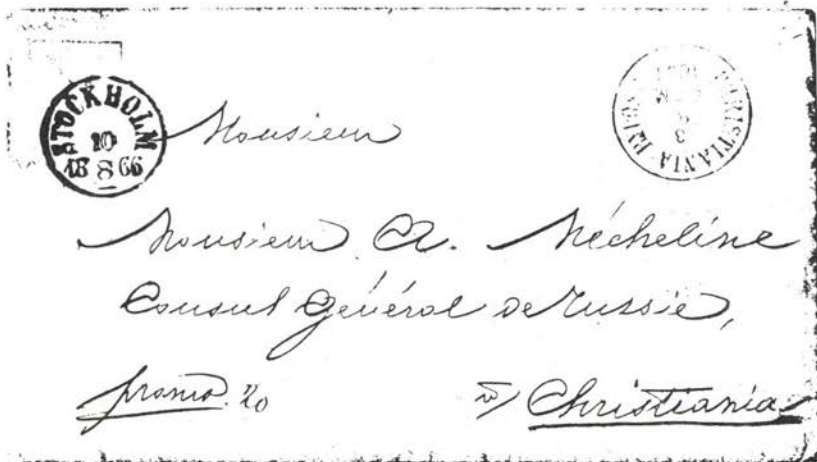 STOCKHOLM
10
8
18 66
CHRISTIANIA
Monsieur
Monsieur A. Mécheline
Consul Général de Russie,
franco. à Christiania